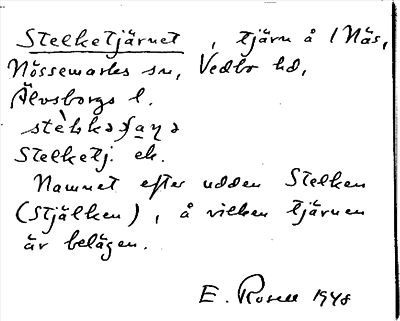 Stelketjärnet, tjärn å 1 Näs,
Nössemarks sn, Vedbo hd,
Älvsborgs l.
stèlkəʃaɳə
Stelketj. ek.
Namnet efter udden Stelken
(Stjälken), å vilken tjärnen
är belägen.
E. Rosell 1948